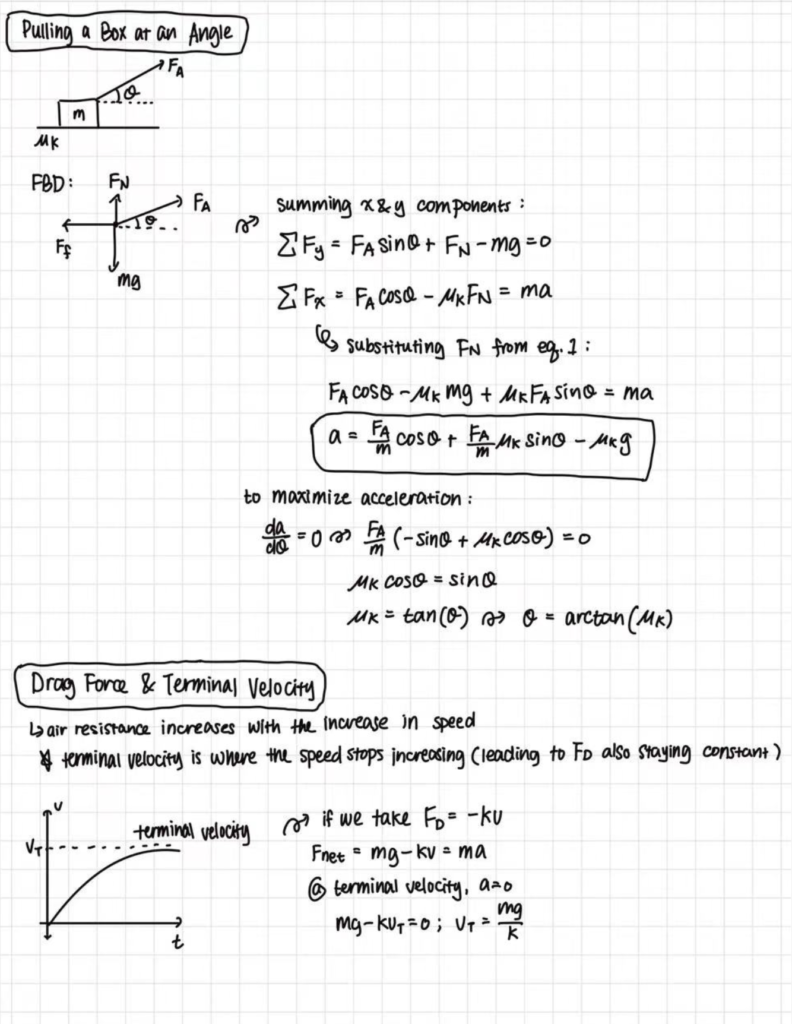 Pulling a Box at an Angle
F_A
θ
m
μ_K
FBD:
F_N
F_A
θ
F_f
mg
summing x & y components:
ΣF_y = F_A sinθ + F_N - mg = 0
ΣF_x = F_A cosθ - μ_K F_N = ma
↳ substituting F_N from eq. 1:
F_A cosθ - μ_K mg + μ_K F_A sinθ = ma
a = F_A/m cosθ + F_A/m μ_K sinθ - μ_K g
to maximize acceleration:
da/dθ = 0 → F_A/m (-sinθ + μ_K cosθ) = 0
μ_K cosθ = sinθ
μ_K = tan(θ) → θ = arctan(μ_K)
Drag Force & Terminal Velocity
↳ air resistance increases with the increase in speed
* terminal velocity is where the speed stops increasing (leading to F_D also staying constant)
v
terminal velocity
V_T
t
→ if we take F_D = -kv
F_net = mg - kv = ma
@ terminal velocity, a=0
mg - kv_T = 0 ; v_T = mg/k